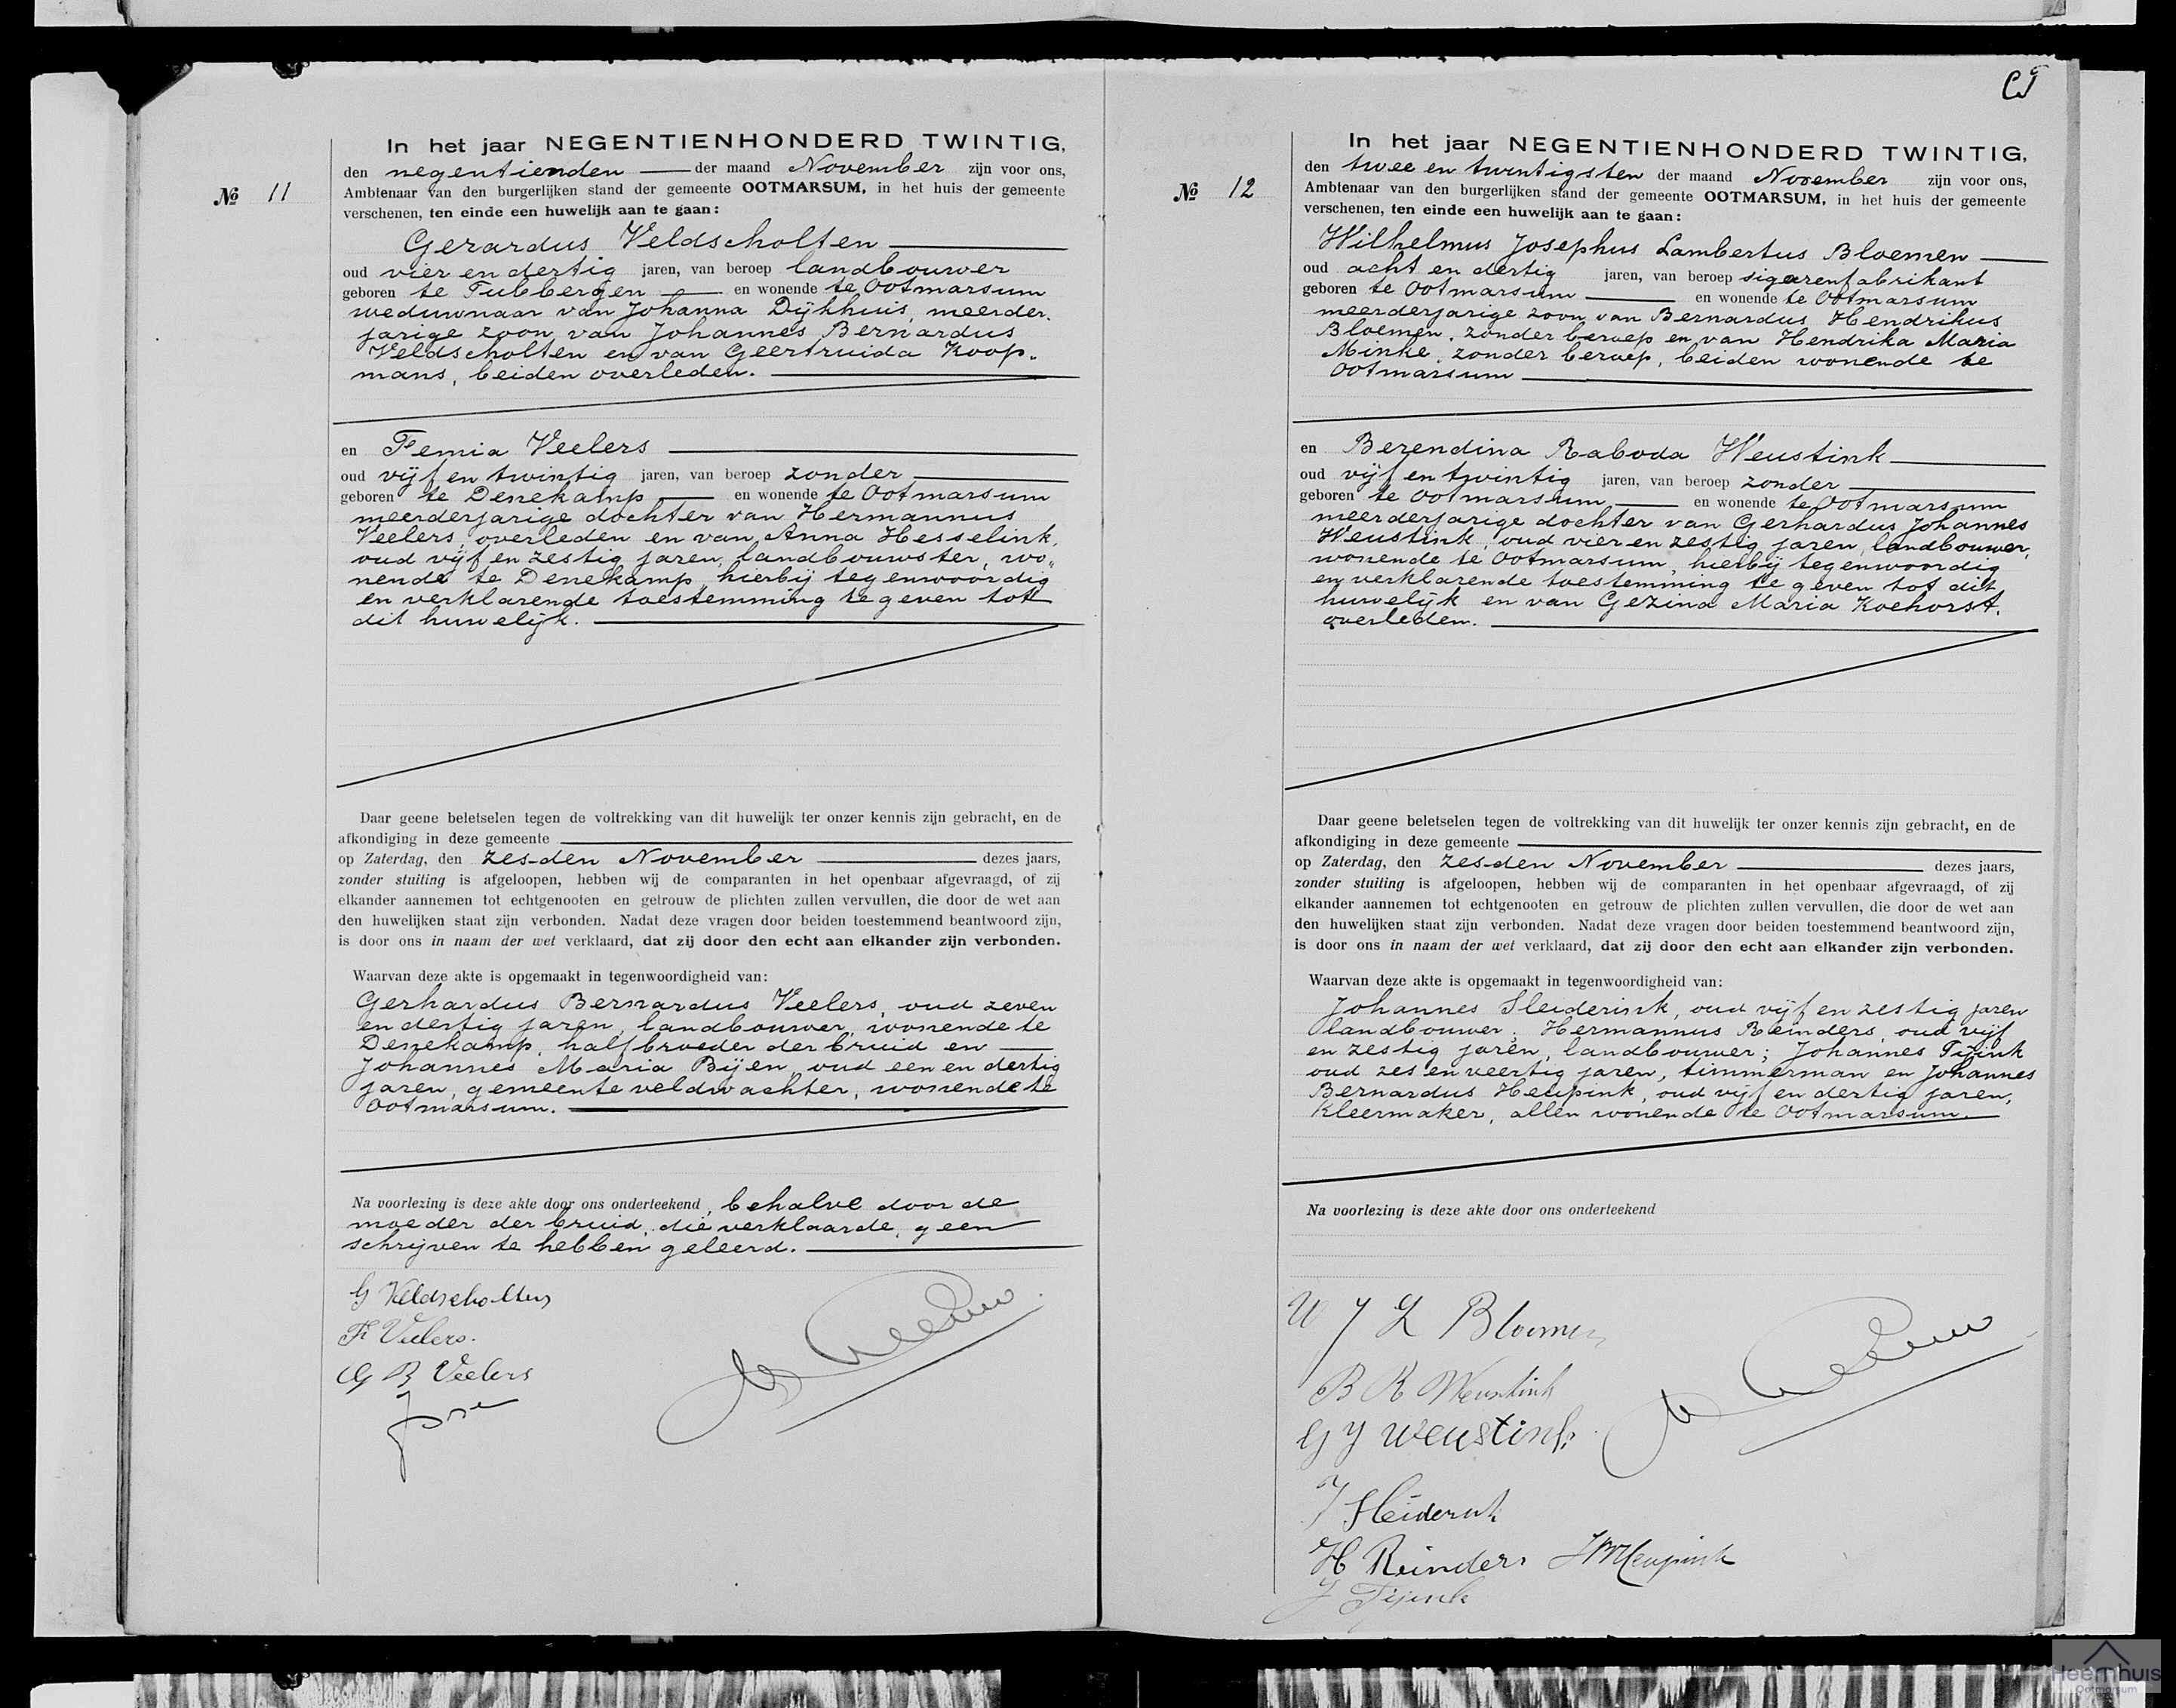 In het jaar NEGENTIENHONDERD TWINTIG,
den negentienden der maand November zijn voor ons,
№ 11
Ambtenaar van den burgerlijken stand der gemeente OOTMARSUM, in het huis der gemeente
verschenen, ten einde een huwelijk aan te gaan:
Gerardus Veldscholten
oud vier en dertig jaren, van beroep landbouwer
geboren te Tubbergen en wonende te Ootmarsum
weduwnaar van Johanna Dijkhuis, meerder-
jarige zoon van Johannes Bernardus
Veldscholten en van Geertruida Koop-
mans, beiden overleden.
en Femia Veelers
oud vijf en twintig jaren, van beroep zonder
geboren te Denekamp en wonende te Ootmarsum
meerderjarige dochter van Hermannus
Veelers, overleden en van Anna Hesselink,
oud vijf en zestig jaren, landbouwster, wo„
nende te Denekamp, hierbij tegenwoordig
en verklarende toestemming te geven tot
dit huwelijk.
Daar geene beletselen tegen de voltrekking van dit huwelijk ter onzer kennis zijn gebracht, en de
afkondiging in deze gemeente
op Zaterdag, den zesden November dezes jaars,
zonder stuiting is afgeloopen, hebben wij de comparanten in het openbaar afgevraagd, of zij
elkander aannemen tot echtgenooten en getrouw de plichten zullen vervullen, die door de wet aan
den huwelijken staat zijn verbonden. Nadat deze vragen door beiden toestemmend beantwoord zijn,
is door ons in naam der wet verklaard, dat zij door den echt aan elkander zijn verbonden.
Waarvan deze akte is opgemaakt in tegenwoordigheid van:
Gerhardus Bernardus Veelers, oud zeven
en dertig jaren, landbouwer, wonende te
Denekamp, halfbroeder der bruid en
Johannes Maria Bijen, oud een en dertig
jaren, gemeenteveldwachter, wonende te
Ootmarsum.
Na voorlezing is deze akte door ons onderteekend, behalve door de
moeder der bruid, die verklaarde, geen
schrijven te hebben geleerd.
G Veldscholten
F. Veelers.
G B Veelers
In het jaar NEGENTIENHONDERD TWINTIG,
den twee en twintigsten der maand November zijn voor ons,
№ 12
Ambtenaar van den burgerlijken stand der gemeente OOTMARSUM, in het huis der gemeente
verschenen, ten einde een huwelijk aan te gaan:
Wilhelmus Josephus Lambertus Bloemen
oud acht en dertig jaren, van beroep sigarenfabrikant
geboren te Ootmarsum en wonende te Ootmarsum
meerderjarige zoon van Bernardus Hendrikus
Bloemen, zonder beroep en van Hendrika Maria
Minke, zonder beroep, beiden wonende te
Ootmarsum
en Berendina Raboda Weustink
oud vijf en twintig jaren, van beroep zonder
geboren te Ootmarsum en wonende te Ootmarsum
meerderjarige dochter van Gerhardus Johannes
Weustink, oud vier en zestig jaren, landbouwer,
wonende te Ootmarsum, hierbij tegenwoordig
en verklarende toestemming te geven tot dit
huwelijk en van Gezina Maria Koehorst,
overleden.
Daar geene beletselen tegen de voltrekking van dit huwelijk ter onzer kennis zijn gebracht, en de
afkondiging in deze gemeente
op Zaterdag, den zesden November dezes jaars,
zonder stuiting is afgeloopen, hebben wij de comparanten in het openbaar afgevraagd, of zij
elkander aannemen tot echtgenooten en getrouw de plichten zullen vervullen, die door de wet aan
den huwelijken staat zijn verbonden. Nadat deze vragen door beiden toestemmend beantwoord zijn,
is door ons in naam der wet verklaard, dat zij door den echt aan elkander zijn verbonden.
Waarvan deze akte is opgemaakt in tegenwoordigheid van:
Johannes Sleiderink, oud vijf en zestig jaren
landbouwer; Hermannus Reinders, oud vijf
en zestig jaren, landbouwer; Johannes Tijink
oud zes en veertig jaren, timmerman en Johannes
Bernardus Heupink, oud vijf en dertig jaren,
kleermaker, allen wonende te Ootmarsum.
Na voorlezing is deze akte door ons onderteekend
W J L Bloemen
B R Weustink
G J Weustink
J Sleiderink
H Reinders JB Heupink
J Tijink
Heemhuis
Ootmarsum